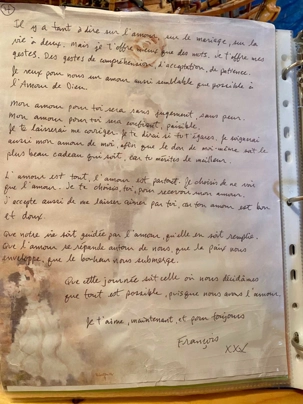 Il y a tant à dire sur l'amour, sur le mariage, sur la
vie à deux, mais je t'offre mieux que des mots. Je t'offre mes
gestes. Des gestes de compréhension, d'acceptation, de patience.
Je veux pour nous un amour aussi semblable que possible à
l'Amour de Dieu.
Mon amour pour toi sera sans jugement, sans peur.
Mon amour pour toi sera confiant, paisible.
Je te laisserai me corriger. Je te dirai si tu t'égares. Je soignerai
aussi mon amour de moi afin que le don de moi-même soit le
plus beau cadeau qui soit, car tu mérites le meilleur.
L'amour est tout, l'amour est partout. Je choisis de ne voir
que l'amour. Je te choisis, toi, pour recevoir mon amour.
J'accepte aussi de me laisser aimer par toi, car ton amour est bon
et doux.
Que notre vie soit guidée par l'amour, qu'elle en soit remplie.
Que l'amour se répande autour de nous, que la paix nous
enveloppe, que le bonheur nous submerge.
Que cette journée soit celle où nous décidâmes
que tout est possible, puisque nous avons l'amour.
Je t'aime, maintenant, et pour toujours
François
xxx